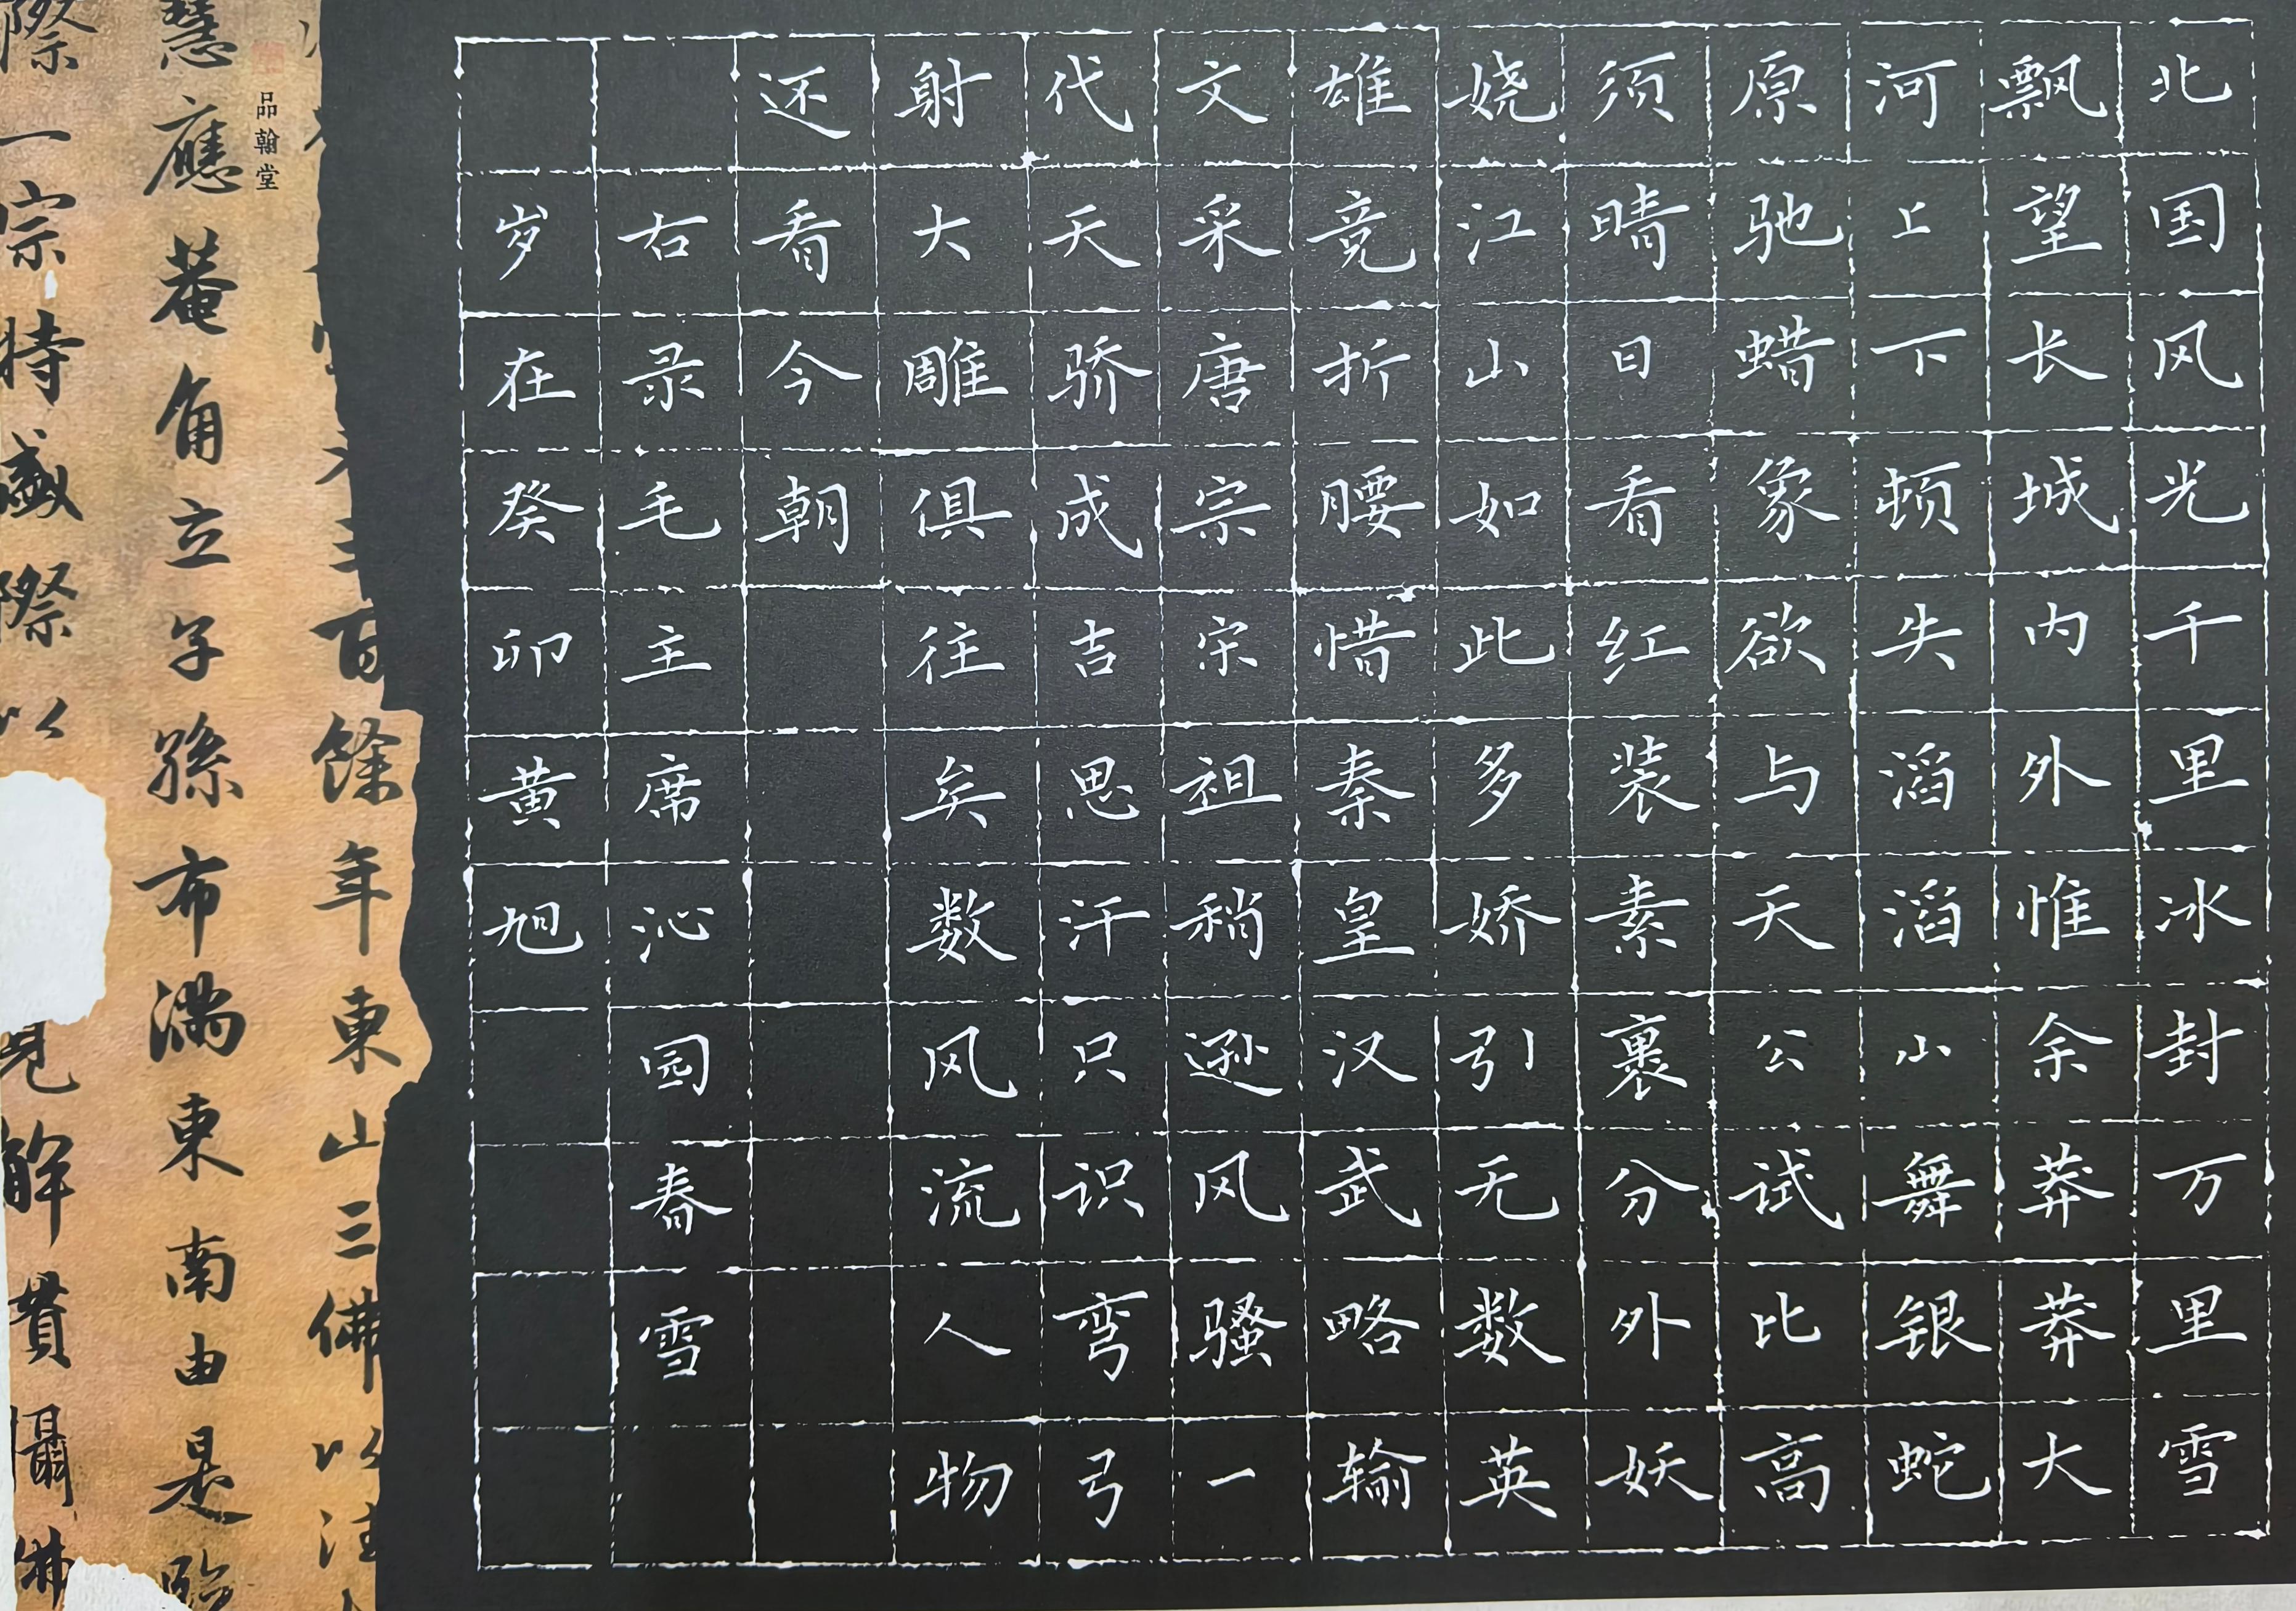 北国风光千里冰封万里雪
飘望长城内外惟余莽莽大
河上下顿失滔滔山舞银蛇
原驰蜡象欲与天公试比高
须晴日看红装素裹分外妖
娆江山如此多娇引无数英
雄竞折腰惜秦皇汉武略输
文采唐宗宋祖稍逊风骚一
代天骄成吉思汗只识弯弓
射大雕俱往矣数风流人物
还看今朝
右录毛主席沁园春雪
岁在癸卯黄旭
百餘年東山三佛以
品翰堂
慧應菴角立子孫布滿東南由是臨
際一宗特盛際以
見解貫攝